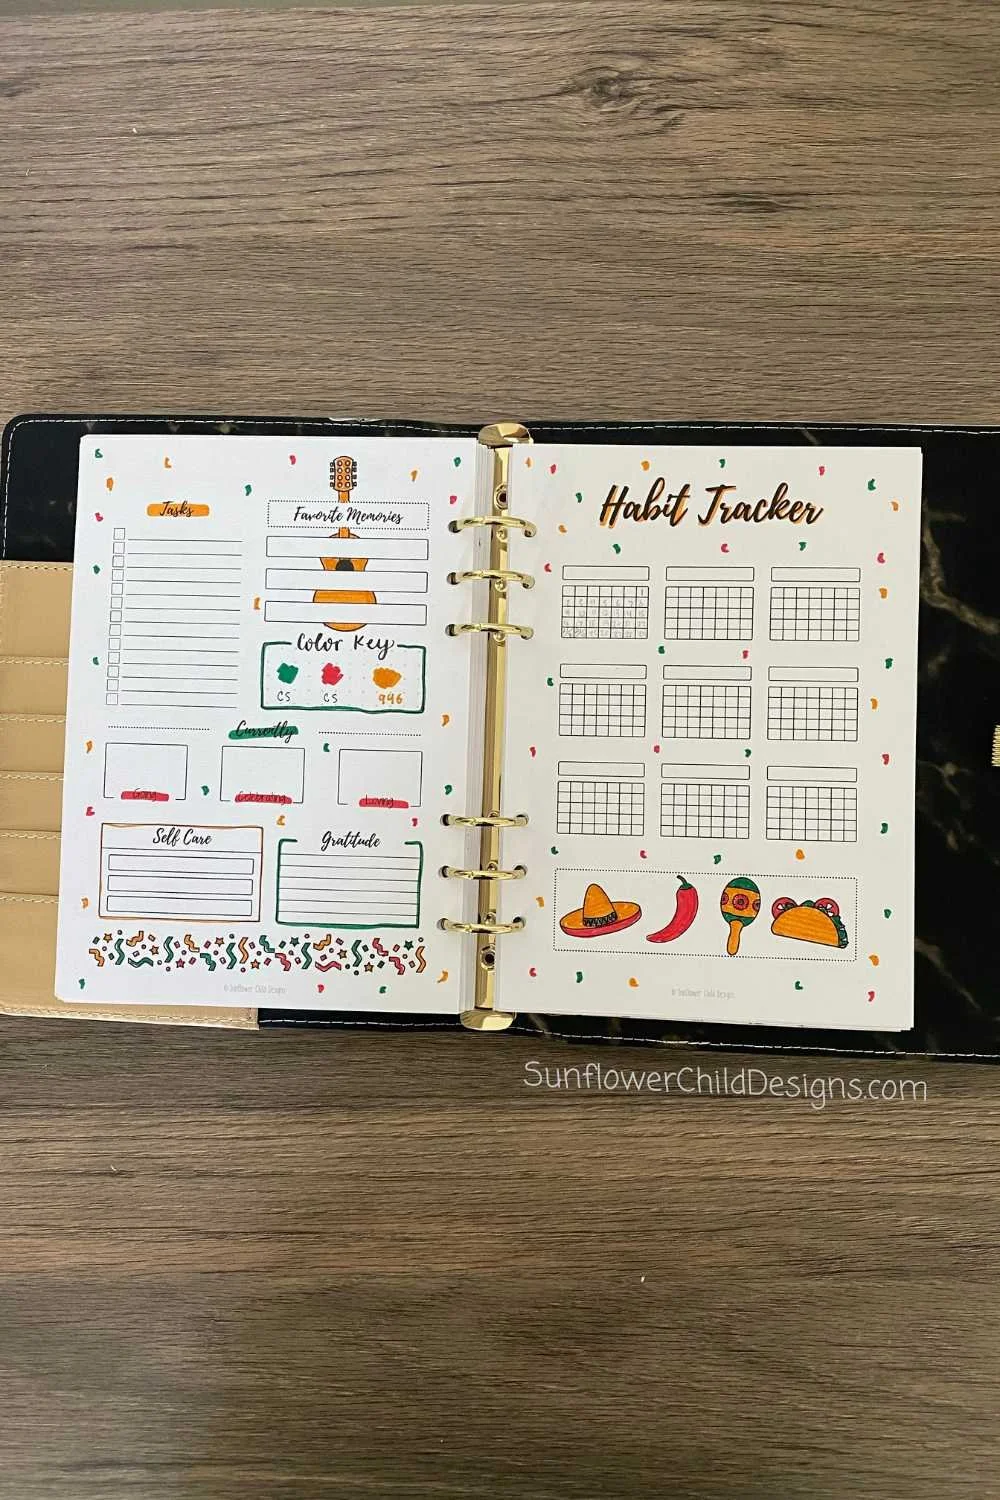 Tasks
Favorite Memories
Color Key
CS CS 946
Currently
Going Celebrating Loving
Self Care Gratitude
© Sunflower Child Designs
Habit Tracker
© Sunflower Child Designs
SunflowerChildDesigns.com